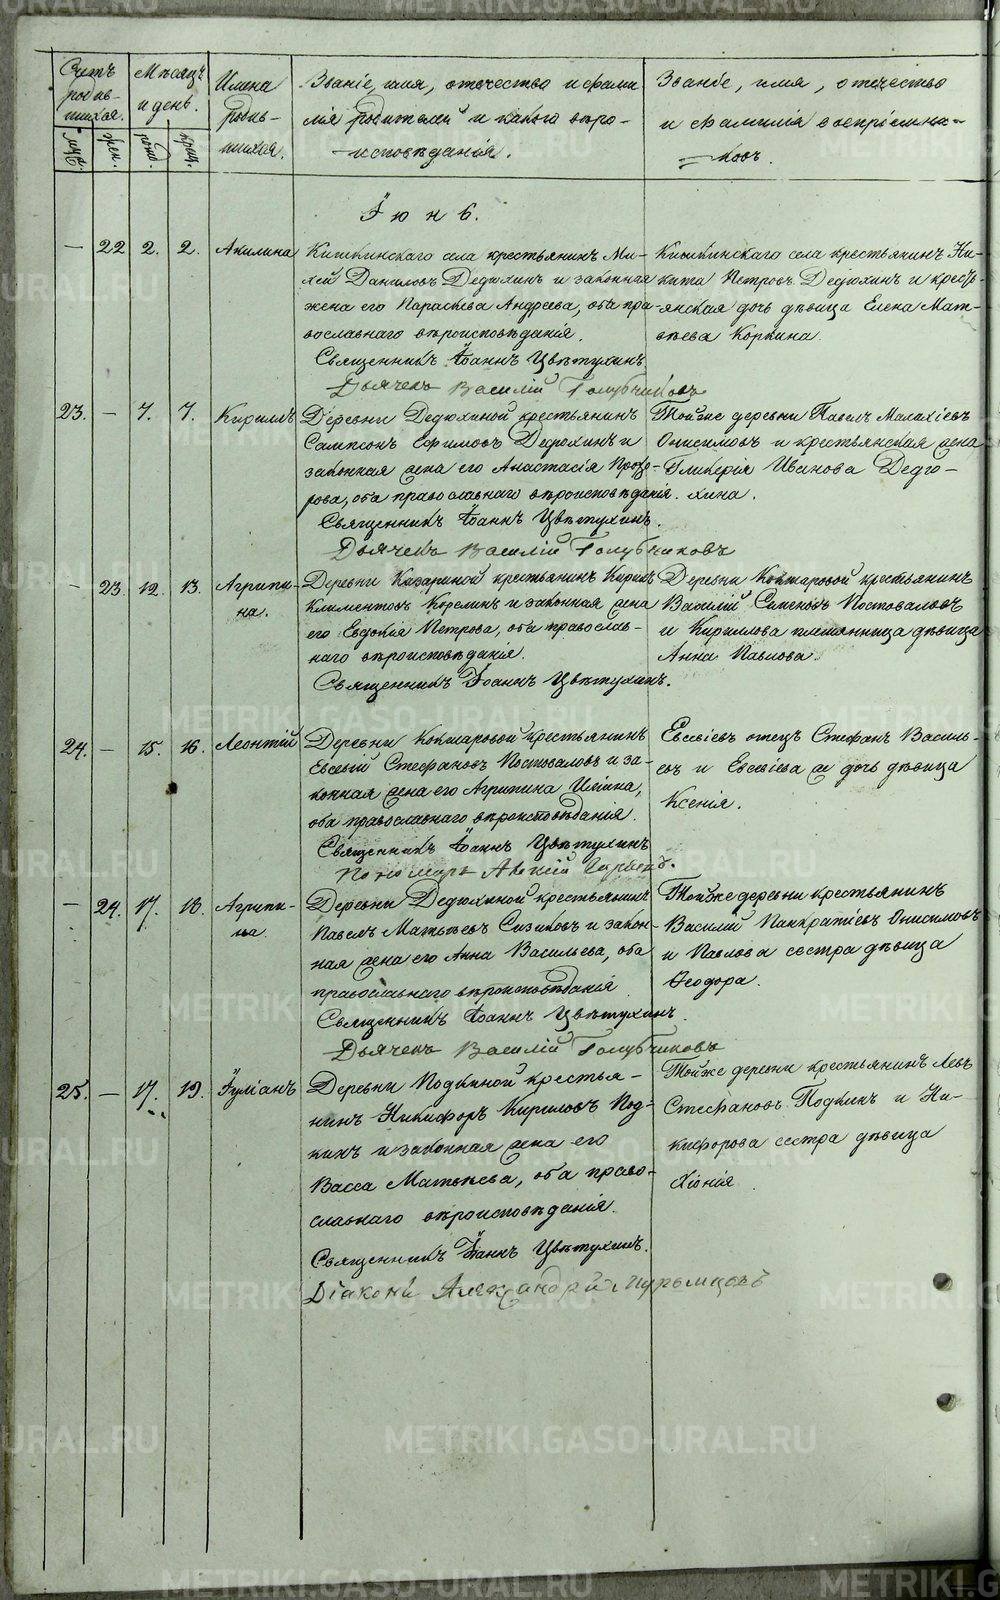 Счетъ родив-шихся.
Мѣсяцъ и день.
Имена родив-шихся.
Званіе, имя, отчество и фами
лія родителей и какого вѣро-
исповѣданія.
Званіе, имя, отчество
и фамилія воспріемни-
ковъ.
муж. жен. рожд. крещ.
Іюнь.
— 22 2. 2. Акилина
Кишкинскаго села крестьянинъ Ми-
хей Даниловъ Дедюхинъ и законная
жена его Параскева Андреева, оба пра
вославнаго вѣроисповѣданія.
Священникъ Іоаннъ Цвѣтухинъ
Дьячекъ Василій Голубчиковъ
Кишкинскаго села крестьянинъ Ни-
кита Петровъ Дедюхинъ и кресть-
янская дочь дѣвица Елена Мат-
вѣева Коркина.
23. — 7. 7. Кириллъ
Деревни Дедюхиной крестьянинъ
Сампсонъ Ефимовъ Дедюхинъ и
законная жена его Анастасія Прохо-
рова, оба православнаго вѣроисповѣданія.
Священникъ Іоаннъ Цвѣтухинъ.
Дьячекъ Василій Голубчиковъ
Тойже деревни Павелъ Малахіевъ
Онисимовъ и крестьянская жена
Гликерія Иванова Дедю-
хина.
— 23. 12. 13. Агрипи-
на.
Деревни Казариной крестьянинъ Кирилъ
Климентовъ Корелинъ и законная жена
его Евдокія Петрова, оба православ-
наго вѣроисповѣданія.
Священникъ Іоаннъ Цвѣтухинъ.
Деревни Кокшаровой крестьянинъ
Василій Симеоновъ Постоваловъ
и Кириллова племянница дѣвица
Анна Павлова.
24. — 15. 16. Леонтій
Деревни Кокшаровой крестьянинъ
Евсевій Стефановъ Постоваловъ и за-
конная жена его Агрипина Ильина,
оба православнаго вѣроисповѣданія.
Священникъ Іоаннъ Цвѣтухинъ
Пономарь
Евсевіевъ отецъ Стефанъ Василь-
евъ и Евсевіева же дочь дѣвица
Ксенія.
— 24. 17. 18. Агрипи-
на
Деревни Дедюхиной крестьянинъ
Павелъ Матвѣевъ Сизиковъ и закон-
ная жена его Анна Васильева, оба
православнаго вѣроисповѣданія
Священникъ Іоаннъ Цвѣтухинъ.
Дьячекъ Василій Голубчиковъ
Тойже деревни крестьянинъ
Василій Панкратіевъ Онисимовъ
и Павлова сестра дѣвица
Ѳеодора.
25. — 17. 19. Іуліанъ
Деревни Подкиной крестья-
нинъ Никифоръ Кириловъ Под-
кинъ и законная жена его
Васса Матвѣева, оба право-
славнаго вѣроисповѣданія.
Священникъ Іоаннъ Цвѣтухинъ.
Діаконъ Александръ
Тойже деревни крестьянинъ Левъ
Стефановъ Подкинъ и Ни-
кифорова сестра дѣвица
Хіонія
METRIKI.GASO-URAL.RU